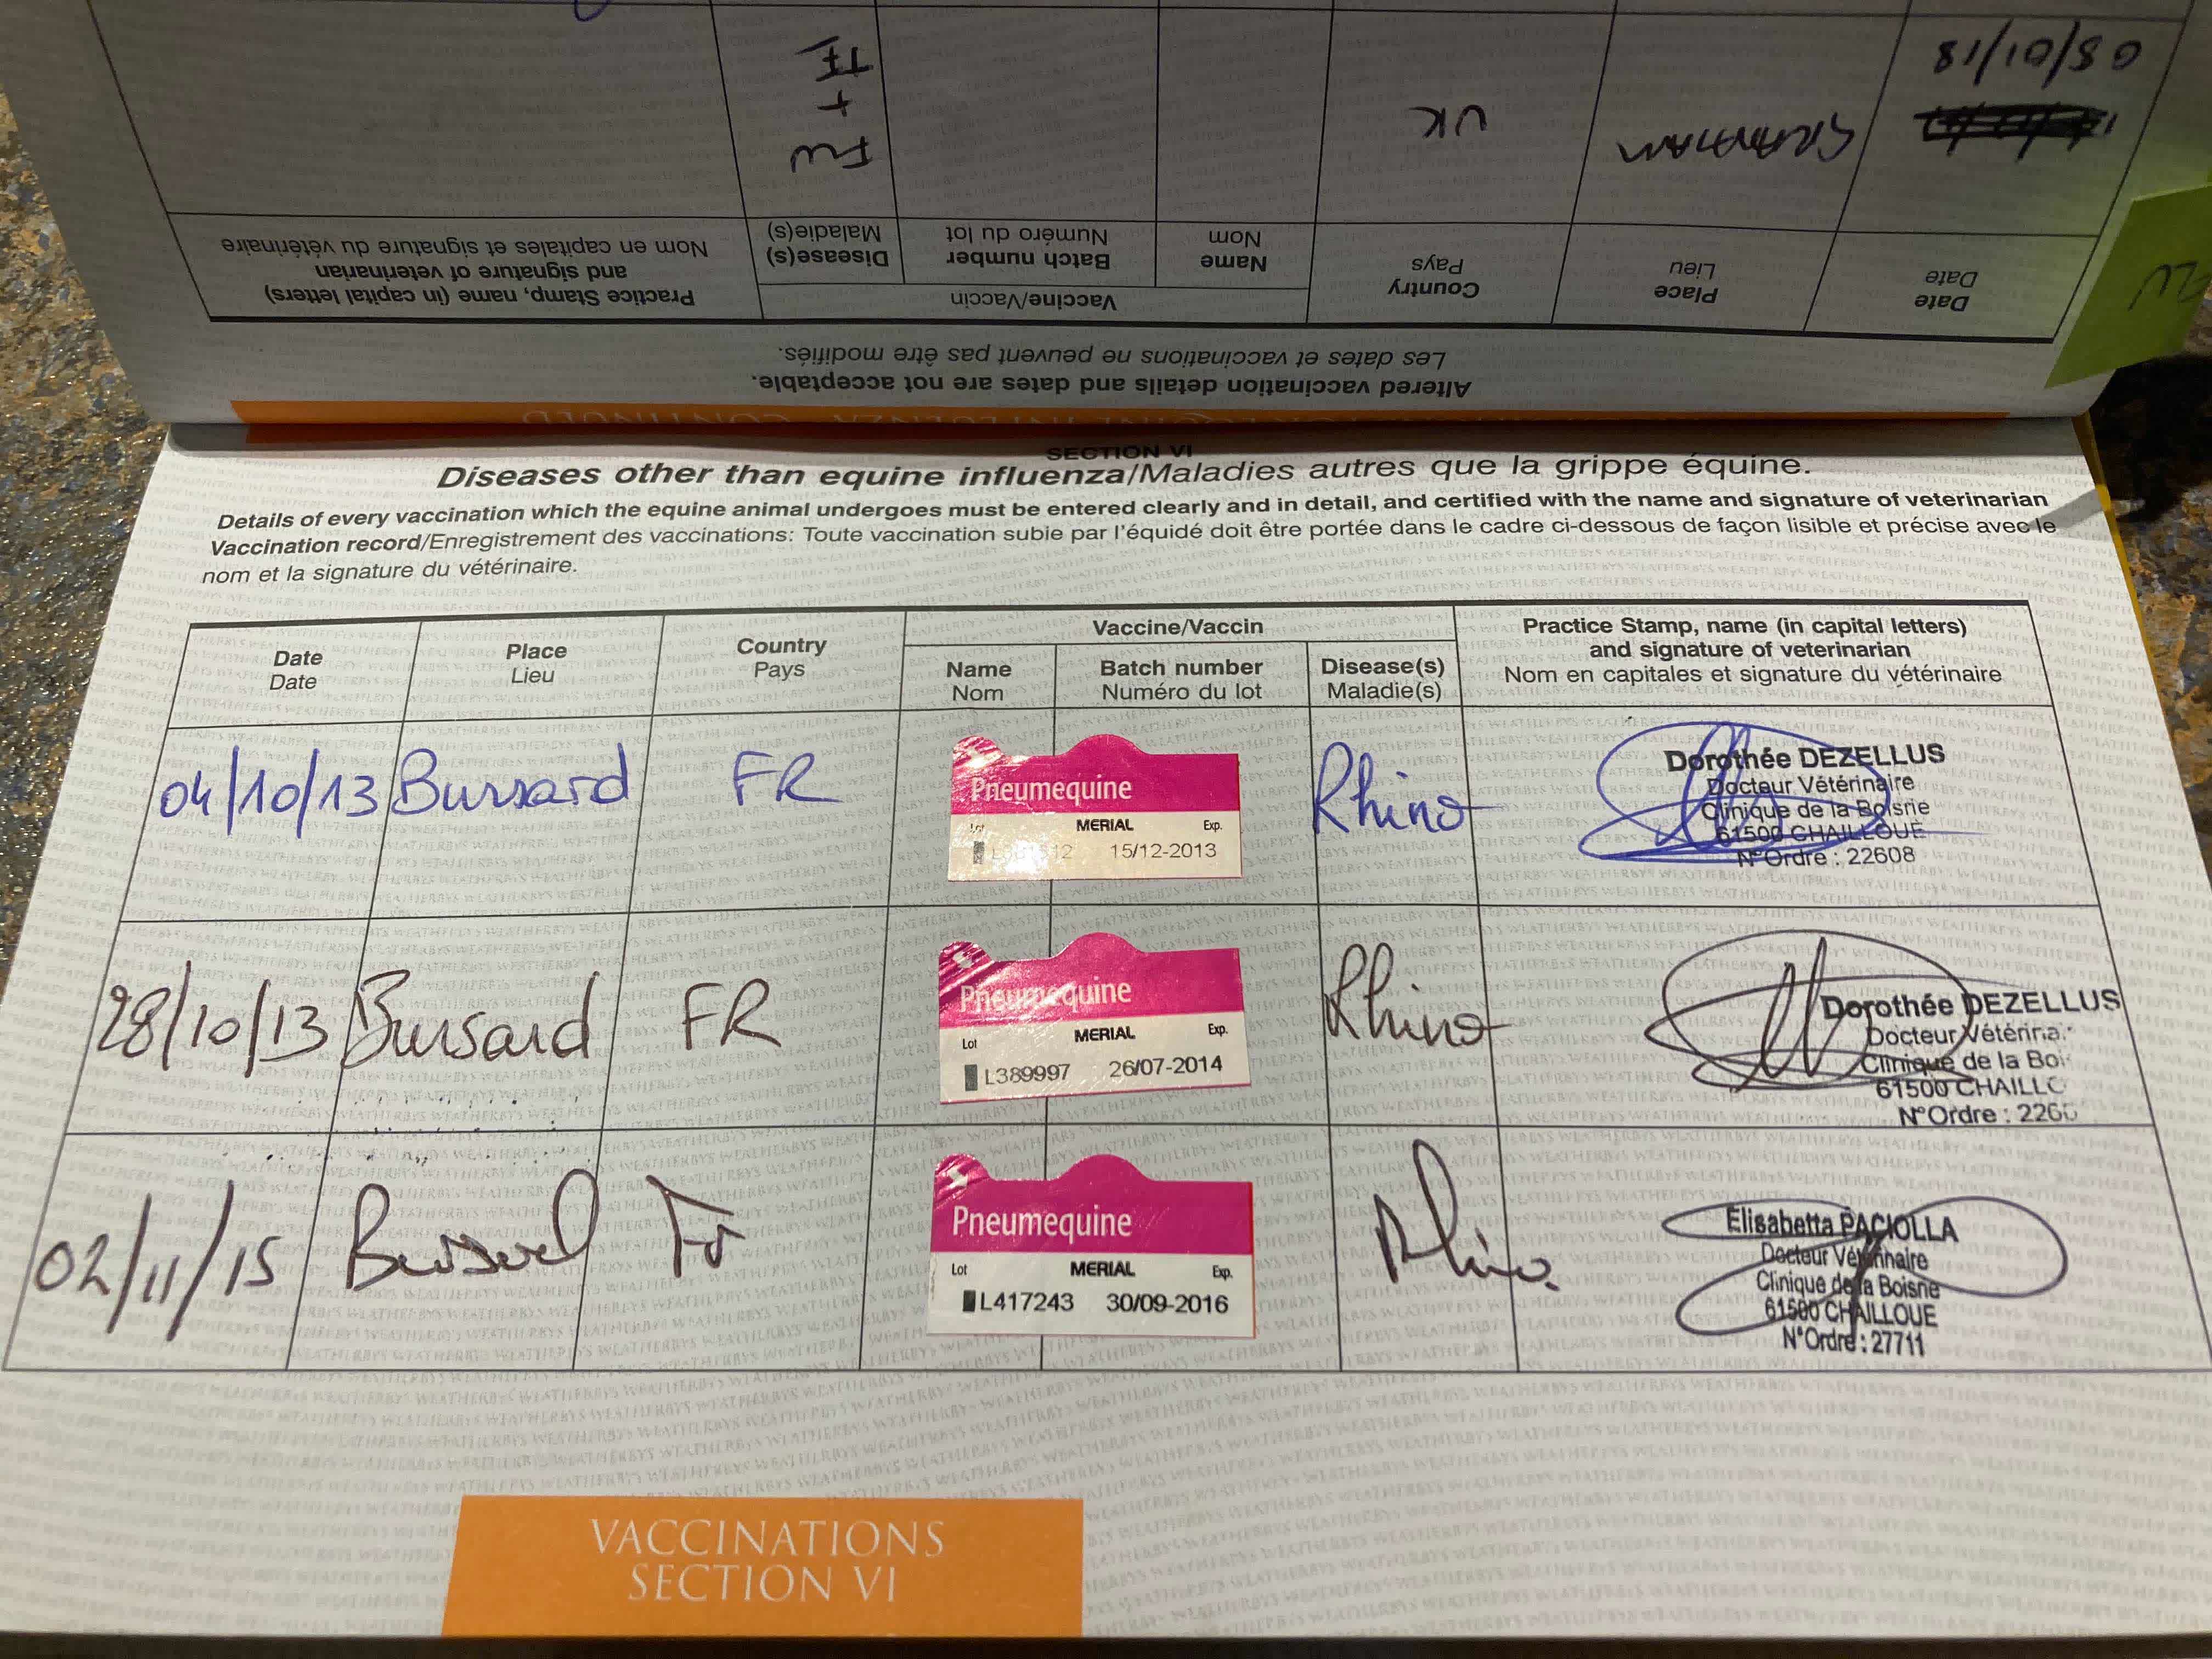 08/01/18
GRANTHAM
UK
FLU
+
TET
Date
Date
Place
Lieu
Country
Pays
Vaccine/Vaccin
Name
Nom
Batch number
Numéro du lot
Disease(s)
Maladie(s)
Practice Stamp, name (in capital letters)
and signature of veterinarian
Nom en capitales et signature du vétérinaire
Altered vaccination details and dates are not acceptable.
Les dates et vaccinations ne peuvent pas être modifiés.
SECTION VI
Diseases other than equine influenza/Maladies autres que la grippe équine.
Details of every vaccination which the equine animal undergoes must be entered clearly and in detail, and certified with the name and signature of veterinarian
Vaccination record/Enregistrement des vaccinations: Toute vaccination subie par l'équidé doit être portée dans le cadre ci-dessous de façon lisible et précise avec le
nom et la signature du vétérinaire.
Date
Date
Place
Lieu
Country
Pays
Vaccine/Vaccin
Name
Nom
Batch number
Numéro du lot
Disease(s)
Maladie(s)
Practice Stamp, name (in capital letters)
and signature of veterinarian
Nom en capitales et signature du vétérinaire
04/10/13 Bursard FR
Pneumequine
Lot MERIAL Exp.
15/12-2013
Rhino
Dorothée DEZELLUS
Docteur Vétérinaire
Clinique de la Boisrie
61500 CHAILLOUE
N°Ordre : 22608
28/10/13 Bursard FR
Pneumequine
Lot MERIAL Exp.
L389997 26/07-2014
Rhino
Dorothée DEZELLUS
Docteur Vétérina
Clinique de la Boi
61500 CHAILLO
N°Ordre : 2260
02/11/15 Bursard Fr
Pneumequine
Lot MERIAL Exp.
L417243 30/09-2016
Rhino.
Elisabetta PACIOLLA
Docteur Vétérinaire
Clinique de la Boisrie
61500 CHAILLOUE
N°Ordre : 27711
VACCINATIONS
SECTION VI